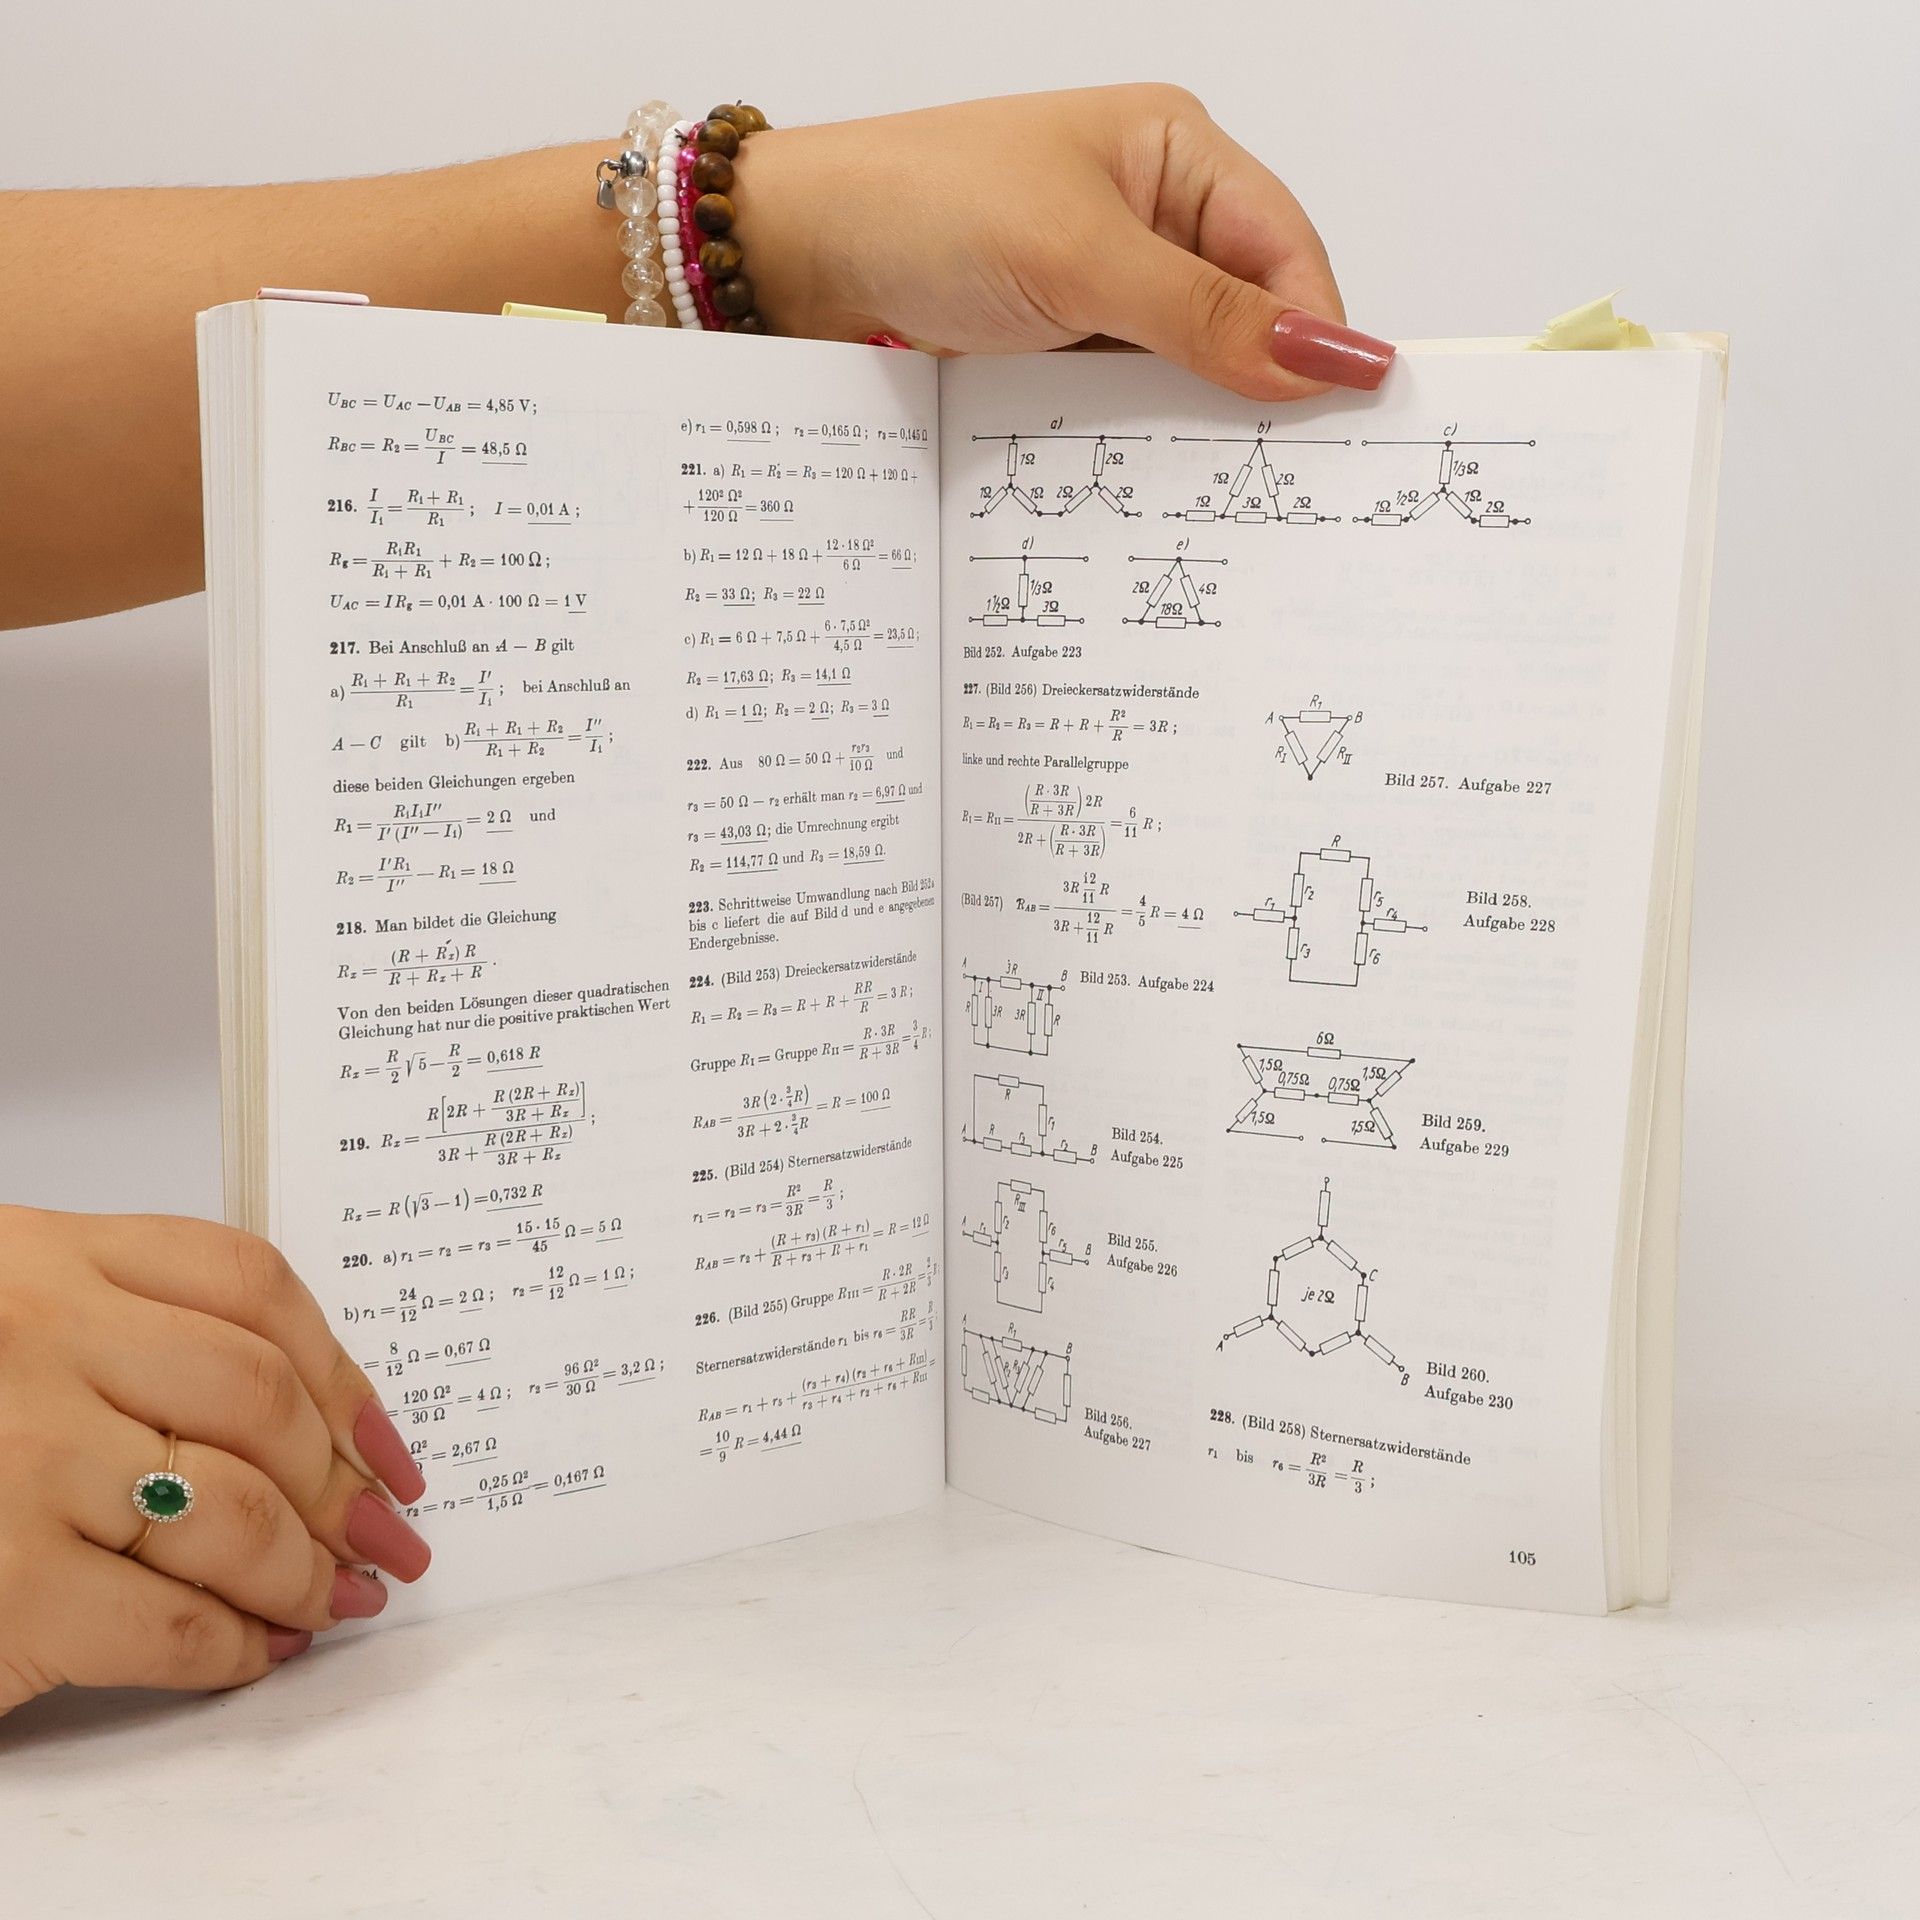 U_BC = U_AC − U_AB = 4,85 V;
R_BC = R₂ = U_BC / I = 48,5 Ω
216. I / I₁ = (R₁ + R₁) / R₁ ; I = 0,01 A ;
R_g = R₁R₁ / (R₁ + R₁) + R₂ = 100 Ω ;
U_AC = I R_g = 0,01 A · 100 Ω = 1 V
217. Bei Anschluß an A − B gilt
a) (R₁ + R₁ + R₂) / R₁ = I′ / I₁ ; bei Anschluß an
A − C gilt b) (R₁ + R₁ + R₂) / (R₁ + R₂) = I″ / I₁ ;
diese beiden Gleichungen ergeben
R₁ = R₁I₁I″ / I′ (I″ − I₁) = 2 Ω und
R₂ = I′R₁ / I″ − R₁ = 18 Ω
218. Man bildet die Gleichung
R_x = (R + R_x) R / (R + R_x + R) .
Von den beiden Lösungen dieser quadratischen
Gleichung hat nur die positive praktischen Wert
R_x = R/2 √5 − R/2 = 0,618 R
219. R_x = R [2R + R (2R + R_x) / (3R + R_x)] / (3R + R (2R + R_x) / (3R + R_x)) ;
R_x = R (√3 − 1) = 0,732 R
220. a) r₁ = r₂ = r₃ = 15 · 15 / 45 Ω = 5 Ω
b) r₁ = 24/12 Ω = 2 Ω ; r₂ = 12/12 Ω = 1 Ω ;
= 8/12 Ω = 0,67 Ω
= 120 Ω² / 30 Ω = 4 Ω ; r₂ = 96 Ω² / 30 Ω = 3,2 Ω ;
Ω² / Ω = 2,67 Ω
r₂ = r₃ = 0,25 Ω² / 1,5 Ω = 0,167 Ω
e) r₁ = 0,598 Ω ; r₂ = 0,165 Ω ; r₃ = 0,145 Ω
221. a) R₁ = R₂ = R₃ = 120 Ω + 120 Ω +
+ 120² Ω² / 120 Ω = 360 Ω
b) R₁ = 12 Ω + 18 Ω + 12 · 18 Ω² / 6 Ω = 66 Ω ;
R₂ = 33 Ω; R₃ = 22 Ω
c) R₁ = 6 Ω + 7,5 Ω + 6 · 7,5 Ω² / 4,5 Ω = 23,5 Ω ;
R₂ = 17,63 Ω; R₃ = 14,1 Ω
d) R₁ = 1 Ω; R₂ = 2 Ω; R₃ = 3 Ω
222. Aus 80 Ω = 50 Ω + r₂r₃ / 10 Ω und
r₃ = 50 Ω − r₂ erhält man r₂ = 6,97 Ω und
r₃ = 43,03 Ω; die Umrechnung ergibt
R₂ = 114,77 Ω und R₃ = 18,59 Ω.
223. Schrittweise Umwandlung nach Bild 252a
bis c liefert die auf Bild d und e angegebenen
Endergebnisse.
224. (Bild 253) Dreieckersatzwiderstände
R₁ = R₂ = R₃ = R + R + RR / R = 3 R ;
Gruppe R_I = Gruppe R_II = R · 3R / (R + 3R) = 3/4 R ;
R_AB = 3R (2 · 3/4 R) / (3R + 2 · 3/4 R) = R = 100 Ω
225. (Bild 254) Sternersatzwiderstände
r₁ = r₂ = r₃ = R² / 3R = R / 3 ;
R_AB = r₂ + (R + r₃) (R + r₁) / (R + r₃ + R + r₁) = R = 12 Ω
226. (Bild 255) Gruppe R_III = R · 2R / (R + 2R) = 2/3 R
Sternersatzwiderstände r₁ bis r₆ = RR / 3R = R / 3
R_AB = r₁ + r₅ + (r₃ + r₄) (r₂ + r₆ + R_III) / (r₃ + r₄ + r₂ + r₆ + R_III) =
= 10/9 R = 4,44 Ω
a) b) c)
1Ω 2Ω 1/3Ω
1Ω 1Ω 2Ω 2Ω 1Ω 2Ω 1Ω 3Ω 2Ω 1Ω 1/2Ω 1Ω 2Ω
d) e)
1/3Ω 2Ω 4Ω
1½Ω 3Ω 18Ω
Bild 252. Aufgabe 223
227. (Bild 256) Dreieckersatzwiderstände
R₁ = R₂ = R₃ = R + R + R² / R = 3R ;
linke und rechte Parallelgruppe
R_I = R_II = (R · 3R / (R + 3R)) 2R / (2R + (R · 3R / (R + 3R))) = 6/11 R ;
(Bild 257) R_AB = 3R 12/11 R / (3R + 12/11 R) = 4/5 R = 4 Ω
A 3R B
I II
R 3R 3R R
Bild 253. Aufgabe 224
R
r₁
A R r₃ r₂ B
Bild 254.
Aufgabe 225
R_III
A r₁ r₂ r₆ r₅ B
r₃ r₄
Bild 255.
Aufgabe 226
A R₁ B
R₂ R₃
Bild 256.
Aufgabe 227
R₁
A B
R_I R_II
Bild 257. Aufgabe 227
R
r₁ r₂ r₅ r₄
r₃ r₆
Bild 258.
Aufgabe 228
6Ω
1,5Ω 0,75Ω 0,75Ω 1,5Ω
1,5Ω 1,5Ω
Bild 259.
Aufgabe 229
C
je 2Ω
A B
Bild 260.
Aufgabe 230
228. (Bild 258) Sternersatzwiderstände
r₁ bis r₆ = R² / 3R = R / 3 ;
105